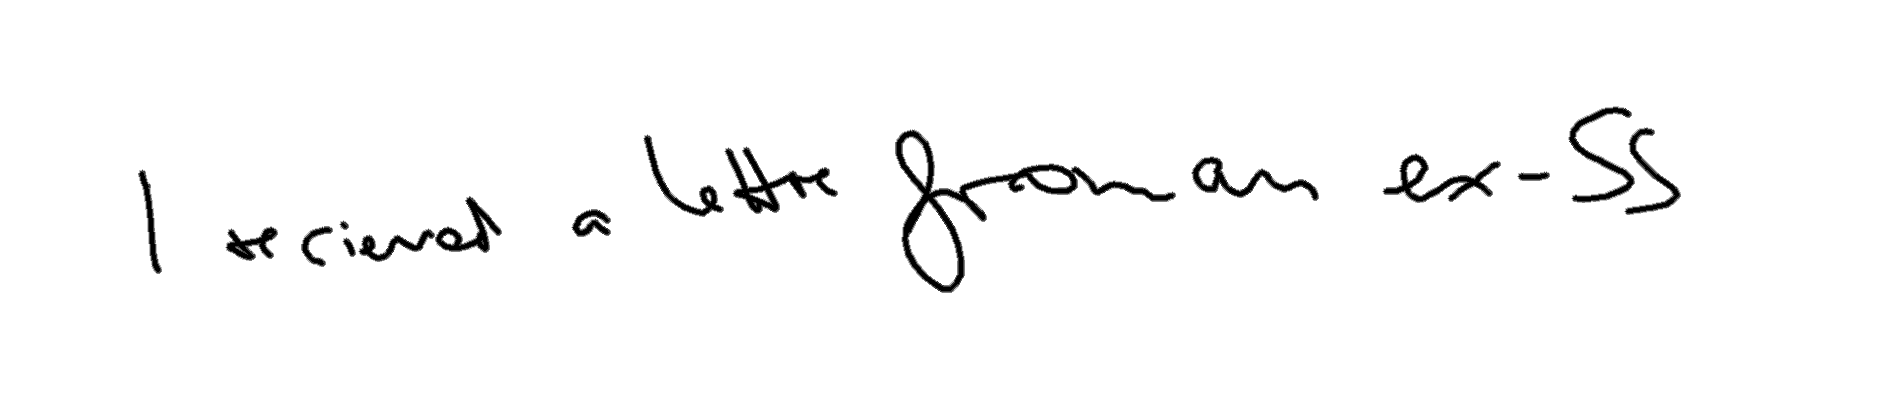 I recieved a lettre from an ex-SS